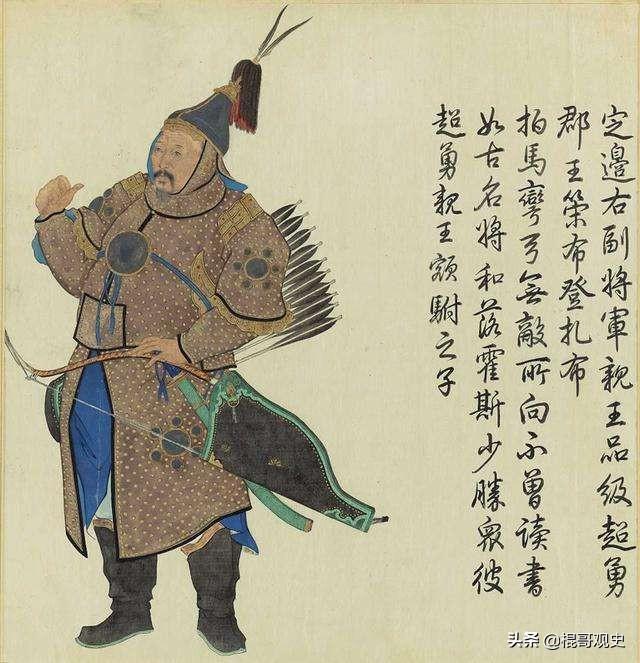 定邊右副將軍親王品級超勇
郡王策布登扎布
拍馬彎弓無敵所向不曾讀書
如古名將和落霍斯少勝衆彼
超勇親王額駙之子
头条 @棍哥观史